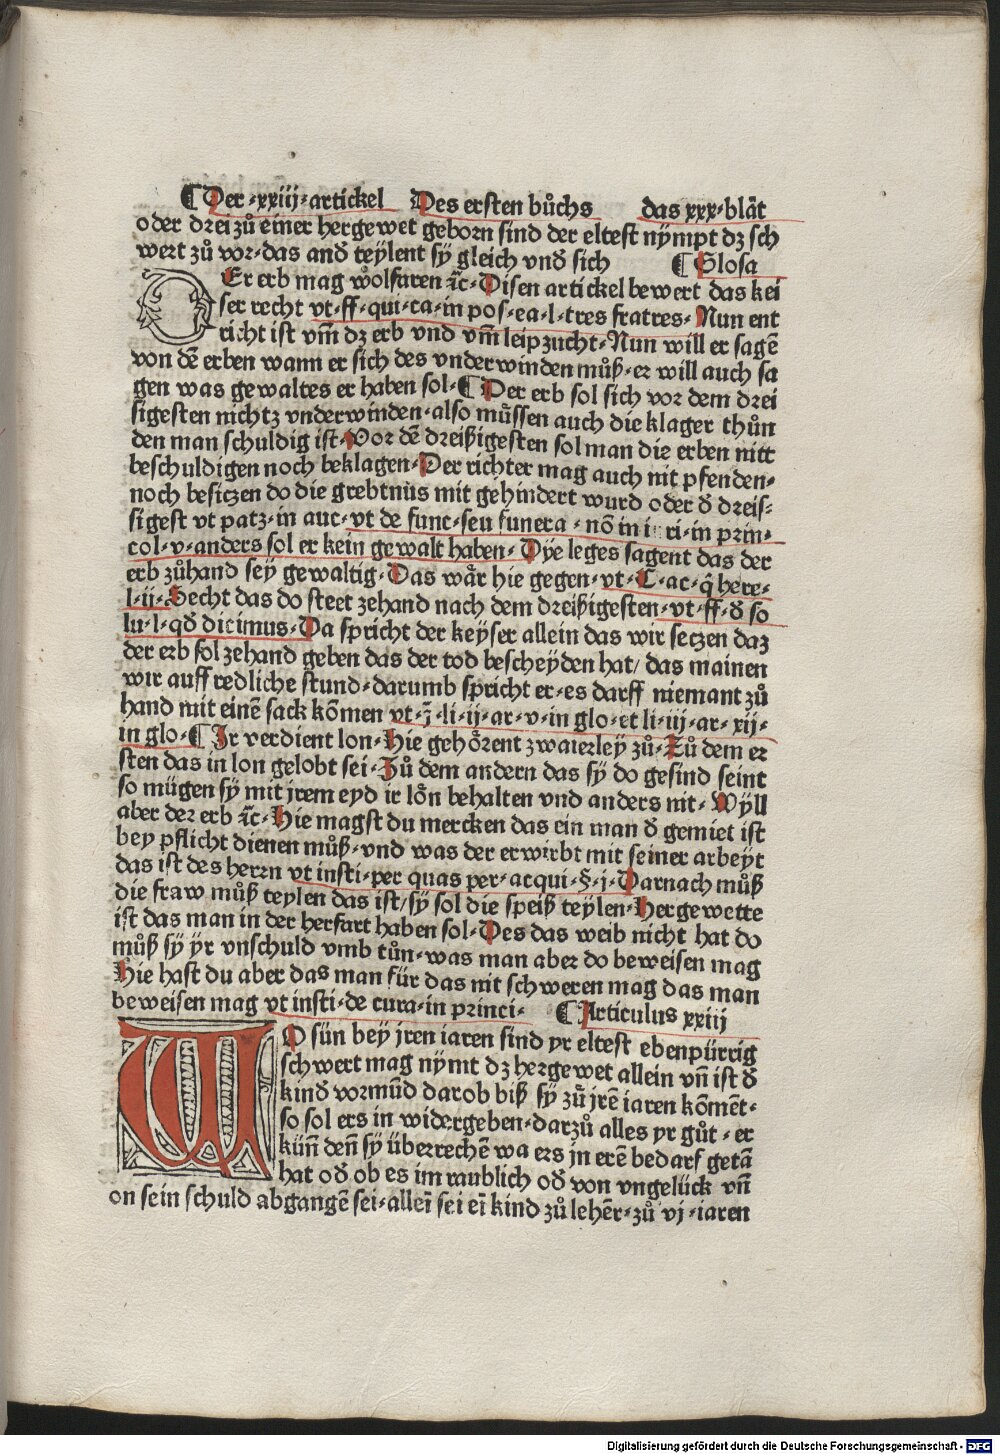 ¶ Der ·xxiij· artickel Des ersten bůchs das xxx· blät
oder drei zů einer hergewet geborn sind der eltest nympt dz sch
wert zů vor· das and̄ teylent sy gleich vnd̄ sich ¶ Glosa
DEr erb mag wol faren ꝛc· Disen artickel bewert das kei
ser recht vt· ff· qui· ca· in pos· ea· l· tres fratres· Nun ent
richt ist vm̄ dz erb vnd vm̄ leipzucht· Nun will er sagē
von dē erben wann er sich des vnderwinden můß· er will auch sa
gen was gewaltes er haben sol· ¶ Der erb sol sich vor dem drei
sigesten nichtz vnderwinden· also můssen auch die klager thůn
den man schuldig ist· Vor dē dreißigesten sol man die erben nitt
beschuldigen noch beklagen· Der richter mag auch nit pfenden·
noch besiczen do die grebtnüs mit gehindert wurd oder d̄ dreis⸗
sigest vt patz· in auc· vt de func· seu funera· nō in i ri· in prin⸗
col· v· anders sol er kein gewalt haben· Dye leges sagent das der
erb zůhand sey gewaltig· Das wår hie gegen· vt· C· ac· q̄ here⸗
l· ij· Secht das do steet zehand nach dem dreißigesten· vt· ff· d̄ so
lu· l· qd̄ dicimus· Da spricht der keyser allein das wir seczen daz
der erb sol zehand geben das der tod bescheyden hat/ das mainen
wir auff redliche stund· darumb spricht er· es darff niemant zů
hand mit einē sack kōmen vt· j̄· li· ij· ar· v· in glo· et li· iij· ar· xij·
in glo· ¶ Ir verdient lon· Hie gehôrent zwaierley zů· Zů dem er
sten das in lon gelobt sei· Zů dem andern das sy do gesind seint
so mügen sy mit jrem eyd ir lōn behalten vnd anders nit· Wyll
aber der erb ꝛc· Hie magst du mercken das ein man d̄ gemiet ist
bey pflicht dienen můß· vnd was der erwirbt mit seiner arbeyt
das ist des herrn vt insti· per quas per· acqui· §· j· Darnach můß
die fraw můß teylen das ist/ sy sol die speiß teylen· Hergewette
ist das man in der herfart haben sol· Des das weib nicht hat do
můß sy yr vnschuld vmb tůn· was man aber do beweisen mag
Hie hast du aber das man für das nit schweren mag das man
beweisen mag vt insti· de cura· in princi· ¶ Articulus xxiij
WO sün bey jren iaren sind yr eltest ebenpürrig
schwert mag nymt dz hergewet allein vn̄ ist d̄
kind vormūd darob biß sy zů jrē iaren kōmēt·
so sol ers in widergeben· darzů alles yr gůt· er
kün̄ den̄ sy überrechē wa ers jn erē bedarf getā
hat od̄ ob es im raublich od̄ von vngelück vn̄
on sein schuld abgangē sei· allei sei ei kind zů lehēr· zů vj· iaren
Digitalisierung gefördert durch die Deutsche Forschungsgemeinschaft - DFG